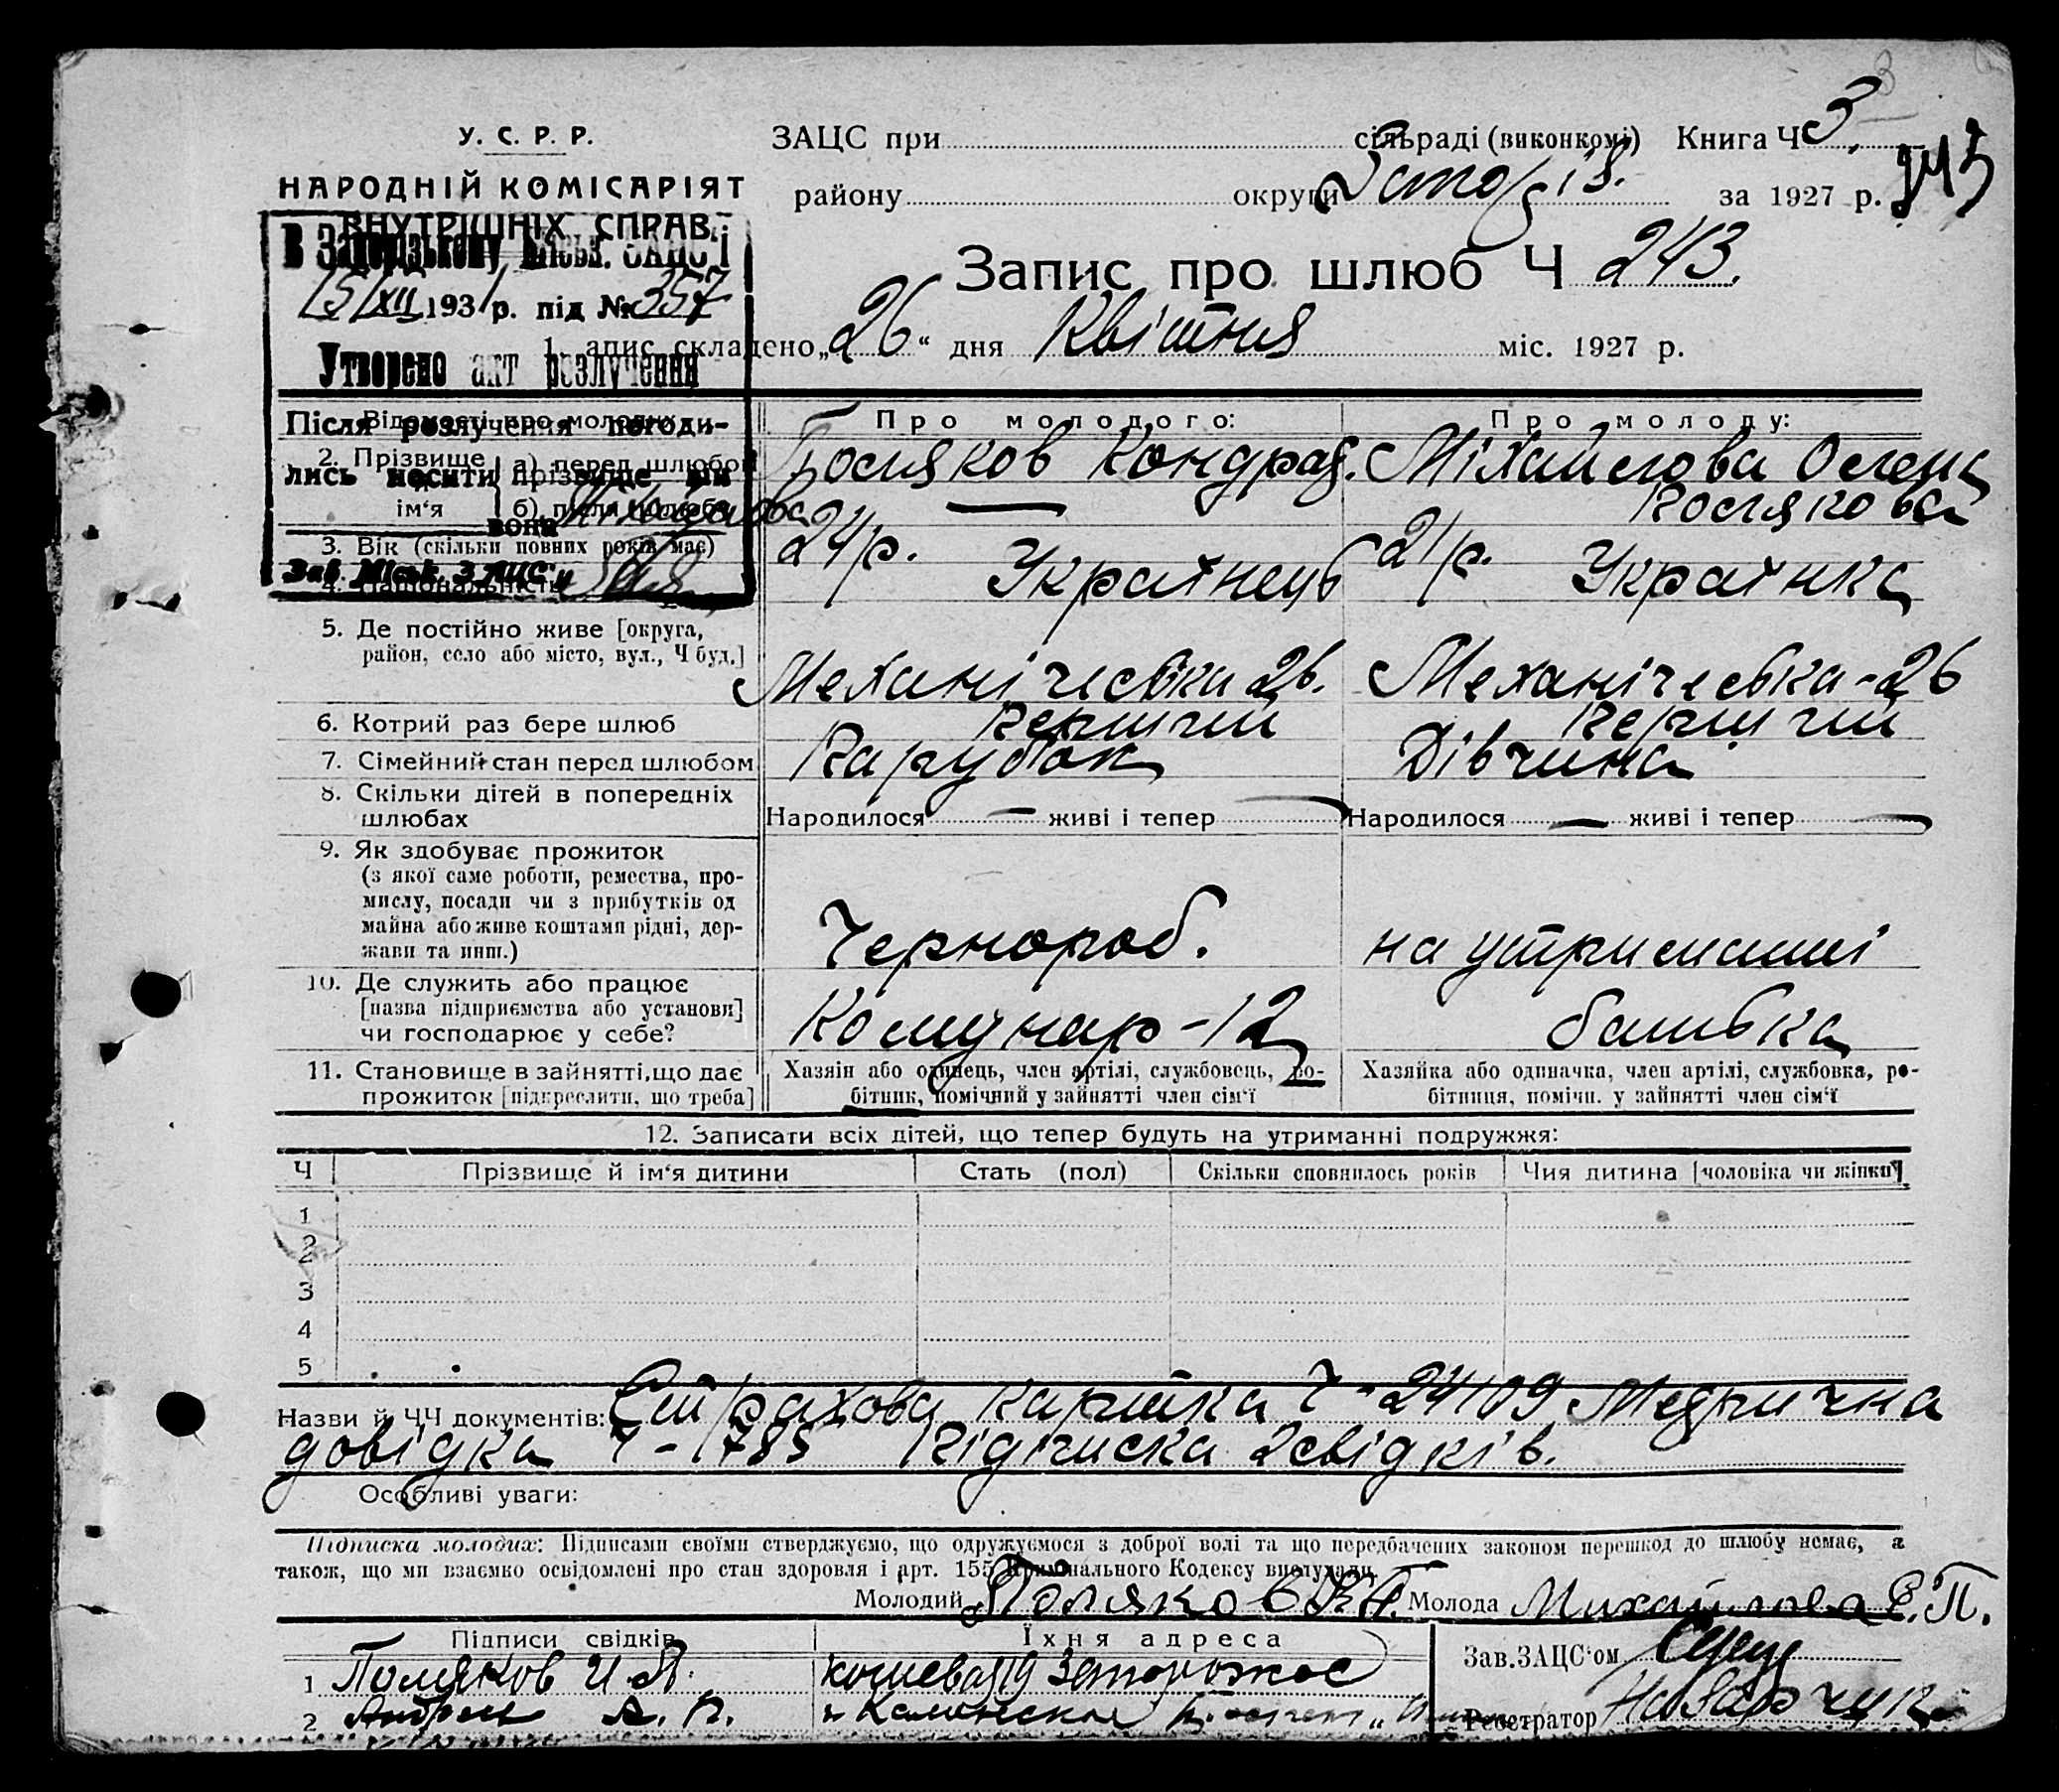 У. С. Р. Р.
НАРОДНІЙ КОМІСАРІЯТ
ВНУТРІШНІХ СПРАВ
ЗАЦС при сільраді (виконкомі) Книга Ч 3
району округи за 1927 р.
243
В Запорізькому Міськ. ЗАЦС'і
15/XII 1931 р. під № 357
Утворено акт розлучення
Після розлучення погоди-
лись носити прізвище він
вона Міхайлова
Зав. Міськ. ЗАЦС'у
Запис про шлюб Ч 243.
1. апис складено „26“ дня Квітня міс. 1927 р.
Відомості про молодих Про молодого: Про молоду:
2. Прізвище й ім‘я
а) перед шлюбом Поляков Кондрат. Міхайлова Олена
б) після шлюбу Полякова
3. Вік (скільки повних років має) 24 р. 21 р.
4. Національність Українець Українка
5. Де постійно живе [округа,
район, село або місто, вул., Ч буд.] Механічеська 26. Механічеська - 26
6. Котрий раз бере шлюб Перший Перший
7. Сімейний стан перед шлюбом Парубок Дівчина
8. Скільки дітей в попередніх
шлюбах Народилося — живі і тепер — Народилося — живі і тепер —
9. Як здобуває прожиток
(з якої саме роботи, ремества, про-
мислу, посади чи з прибутків од
майна або живе коштами рідні, дер-
жави та инш.) Чернороб. на утриманні
10. Де служить або працює
[назва підприємства або установи]
чи господарює у себе? Комунар - 12 батька
11. Становище в зайнятті, що дає
прожиток [підкреслити, що треба]
Хазяїн або одинець, член артілі, службовець, ро-
бітник, помічний у зайнятті член сім‘ї
Хазяйка або одиначка, член артілі, службовка, ро-
бітниця, помічн. у зайнятті член сім‘ї
12. Записати всіх дітей, що тепер будуть на утриманні подружжя:
Ч Прізвище й ім‘я дитини Стать (пол) Скільки сповнилось років Чия дитина [чоловіка чи жінки]
1
2
3
4
5
Назви й ЧЧ документів: Страхова картка Ч - 24109 Медична
довідка Ч - 1785 Підписка 2 свідків.
Особливі уваги:
Підписка молодих: Підписами своїми стверджуємо, що одружуємося з доброї волі та що передбачених законом перешкод до шлюбу немає, а
також, що ми взаємно освідомлені про стан здоровля і арт. 155 Кримінального Кодексу вислухали.
Молодий Поляков К.П. Молода Михайлова Е. П.
Підписи свідків Їхня адреса
1 Поляков И Я. кошевая 19 Запорожье
2 А. П. Каменское
Зав. ЗАЦС‘ом
Реєстратор Назарчук